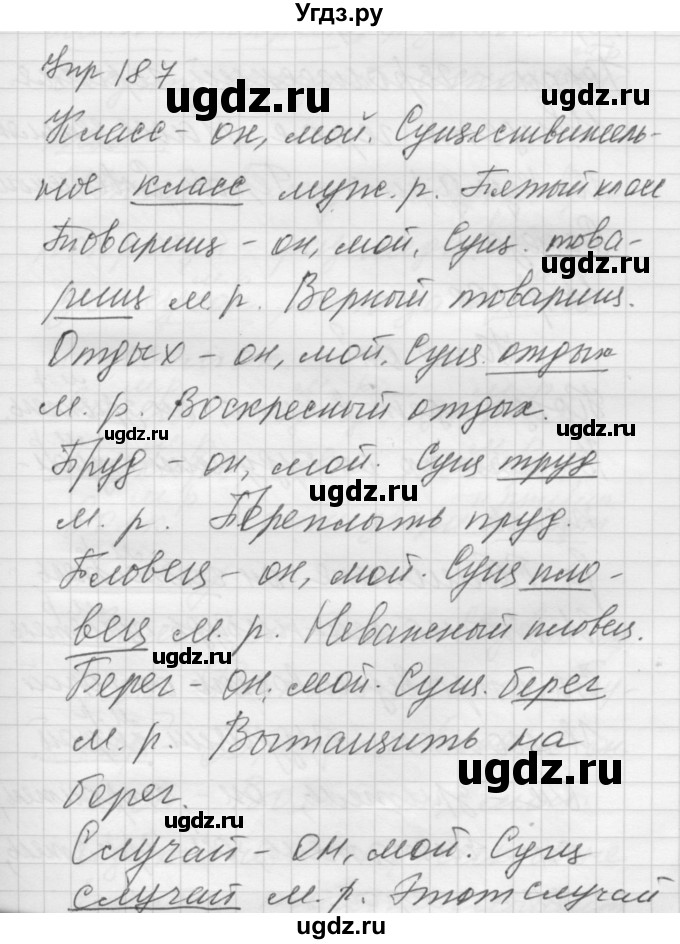 Угдз.ру
Упр 187
ugdz.ru
Класс - он, мой. Существитель-
ное класс муж. р. Пятый класс
ugdz.ru
Товарищ - он, мой. Сущ. това-
рищ м. р. Верный товарищ.
ugdz.ru
Отдых - он, мой. Сущ. отдых
м. р. Воскресный отдых.
ugdz.ru
Пруд - он, мой. Сущ труд
ugdz.ru
м. р. Переплыть пруд.
Пловец - он, мой. Сущ пло-
вец м. р. Неважный пловец.
ugdz.ru
Берег - он, мой. Сущ. берег
м. р. Вытащить на
ugdz.ru
берег.
ugdz.ru
Случай - он, мой. Сущ
случай м. р. Этот случай
ugdz.ru